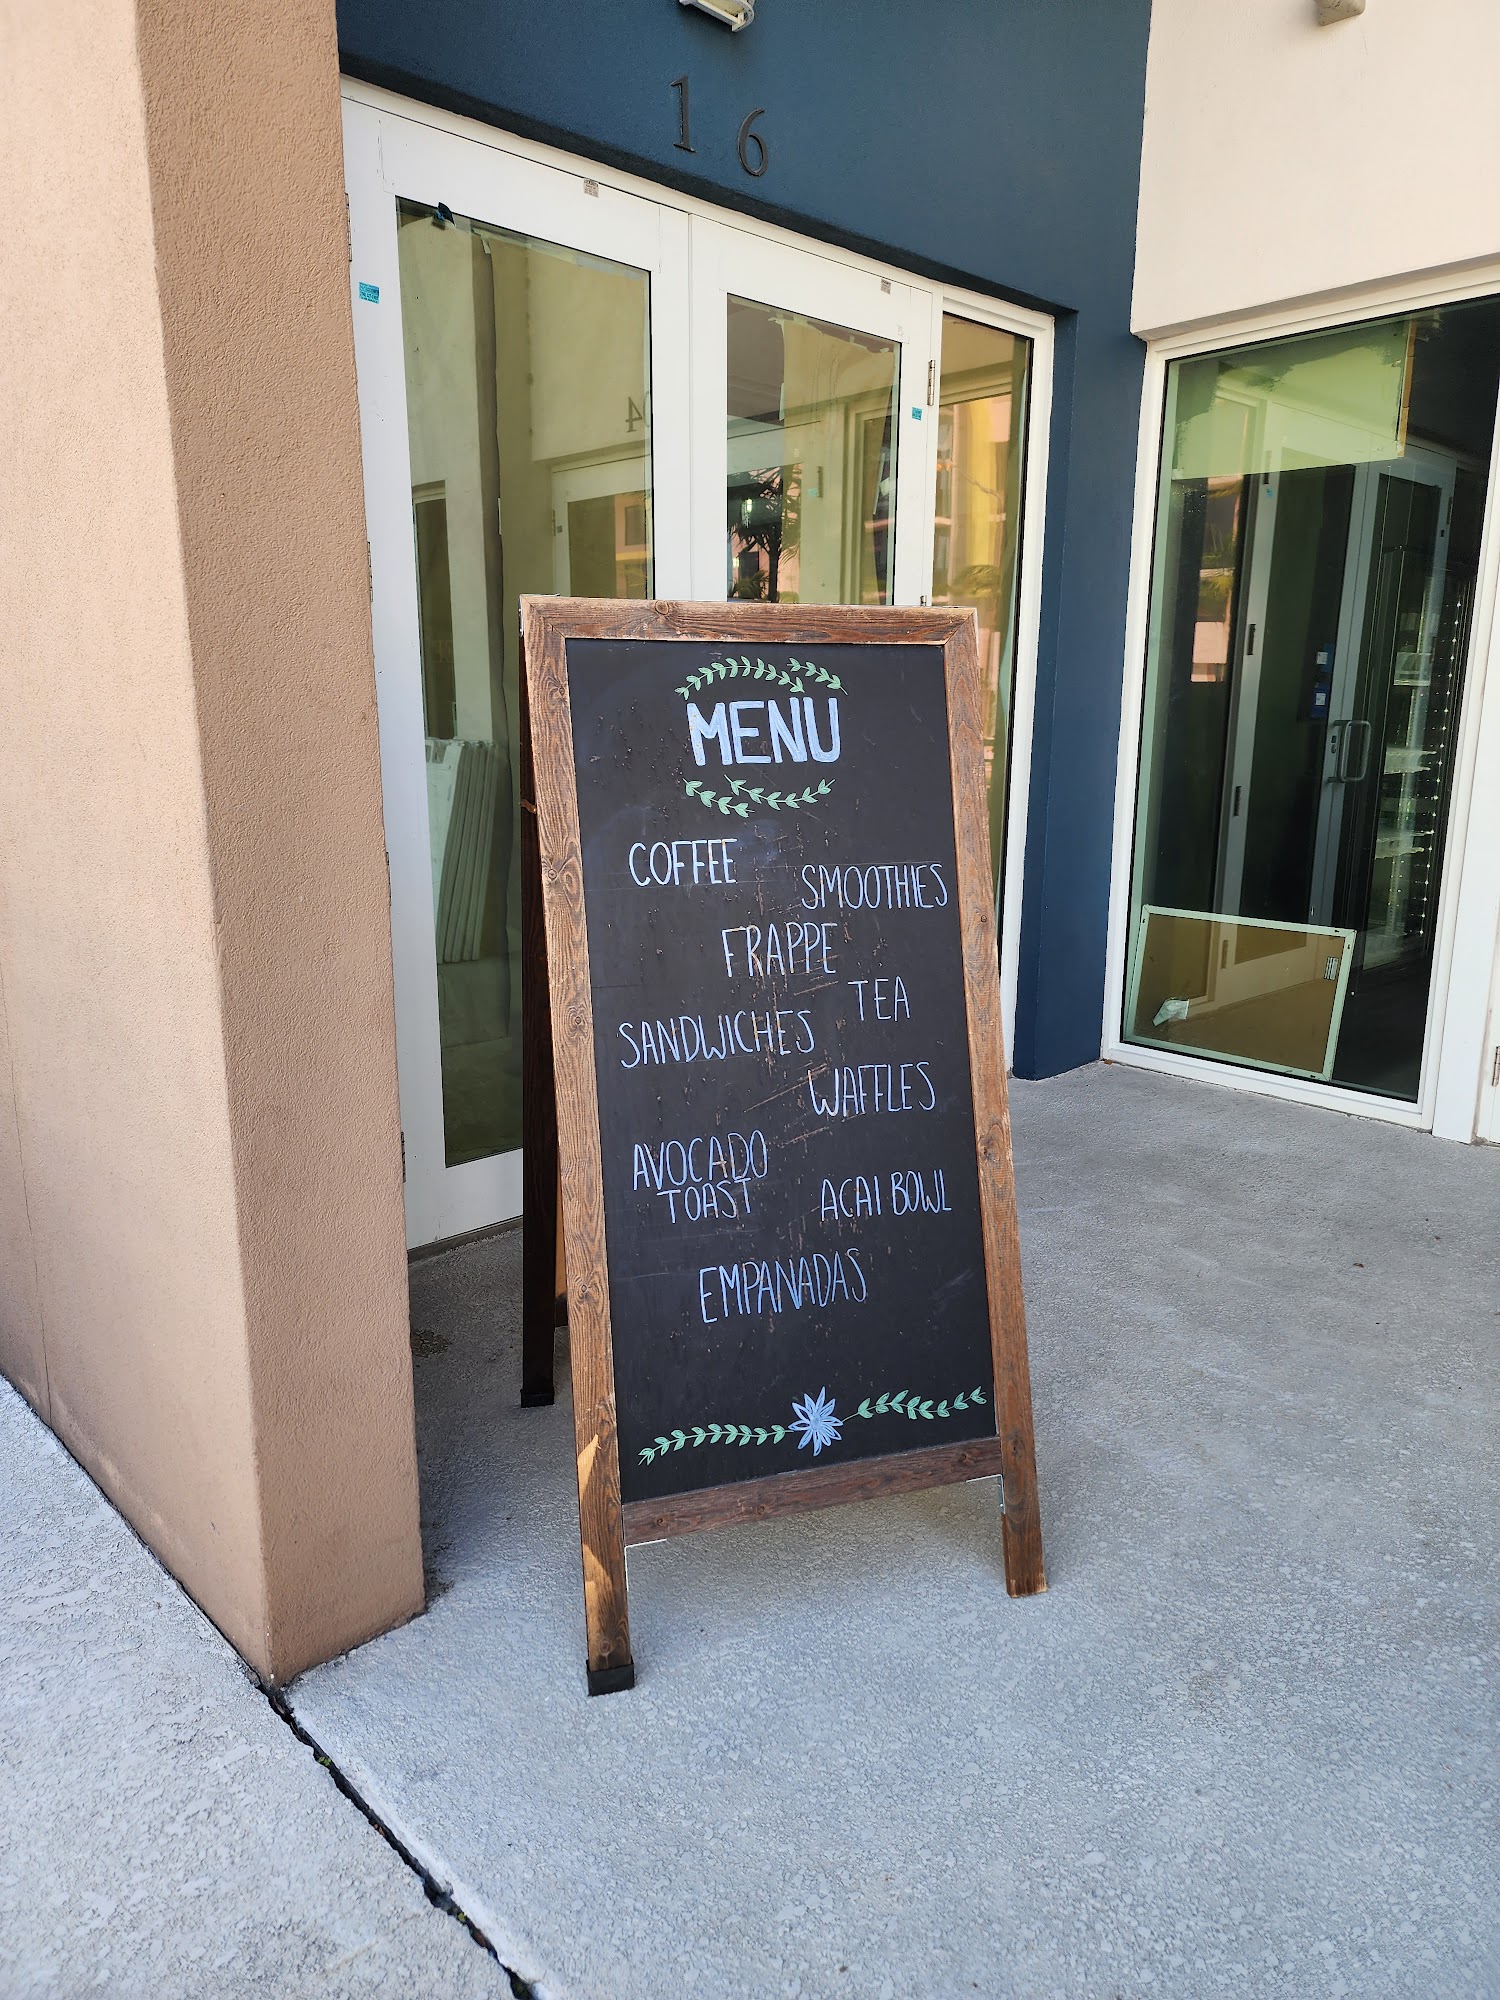 16
MENU
COFFEE
SMOOTHIES
FRAPPE
TEA
SANDWICHES
WAFFLES
AVOCADO
TOAST
ACAI BOWL
EMPANADAS